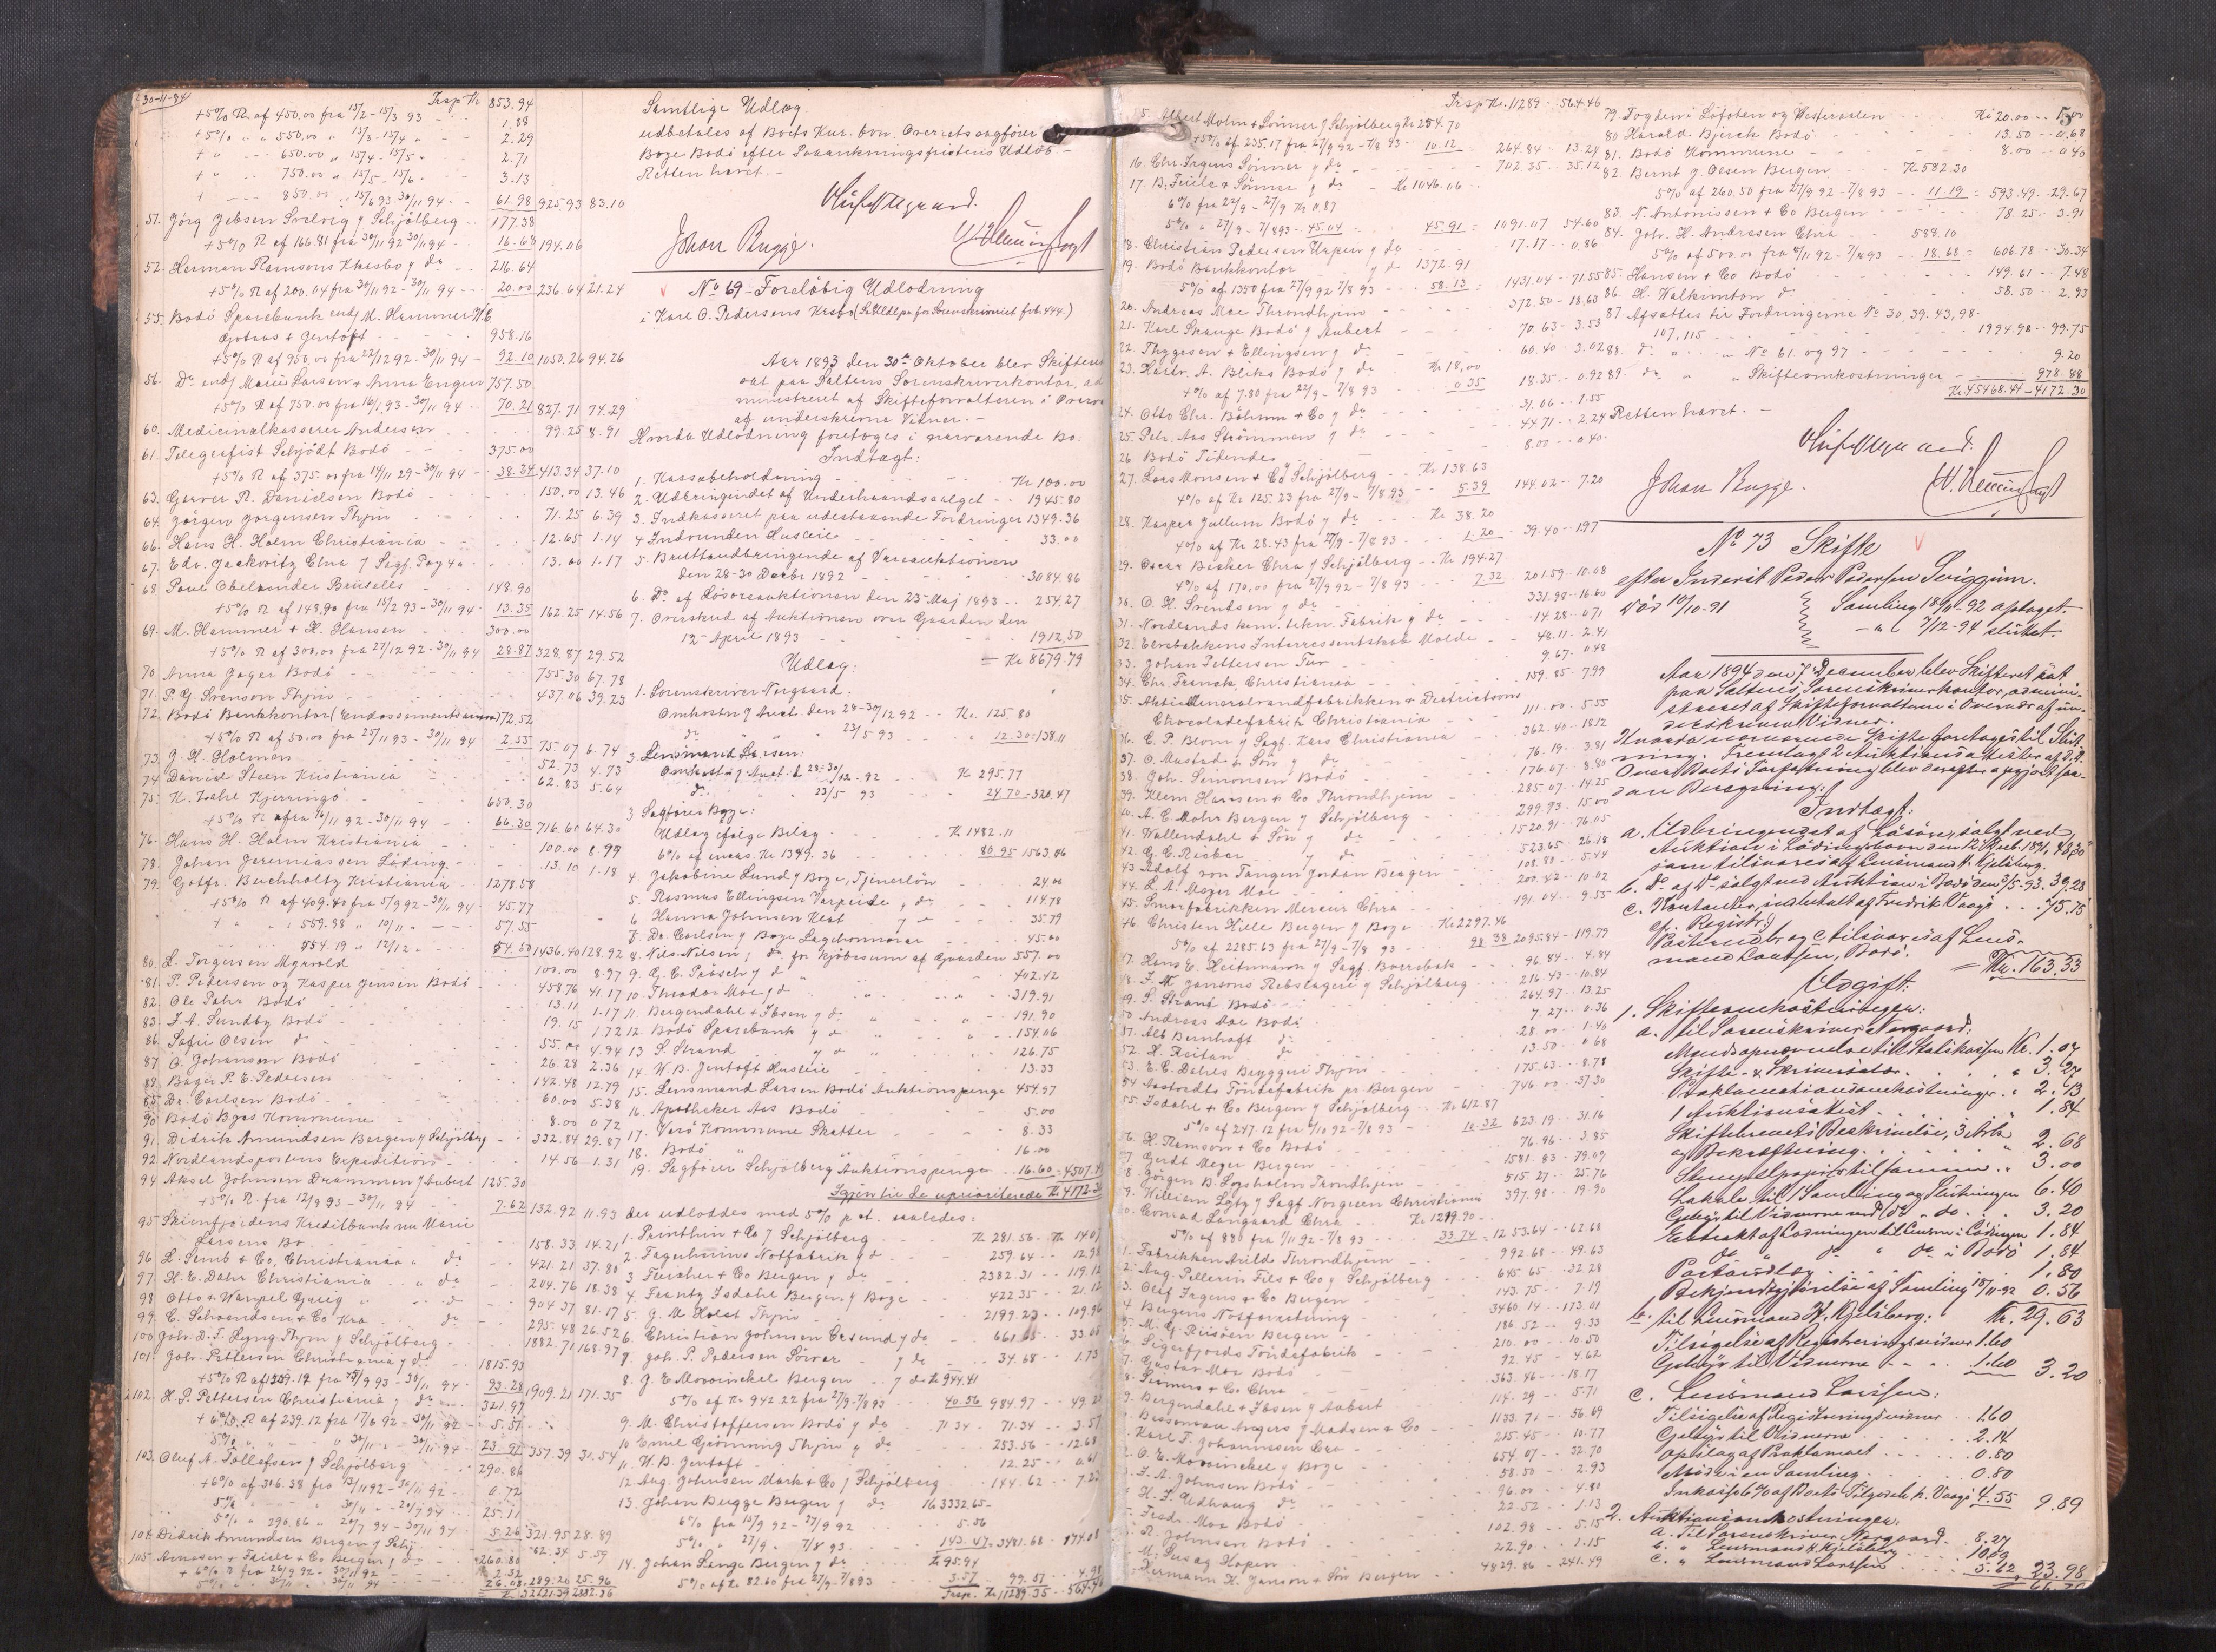 30-11-94
Trsp Kr 853.94
+5% R. af 450.00 fra 15/2 - 15/3 93 - 1.88
+5% " " 550.00 " 15/3 - 15/4 " - 2.29
+ " - 650.00 " 15/4 - 15/5 " - 2.71
+ " 750.00 " 15/5 - 15/6 " 3.13
+ 850.00 " 15/6 93 - 30/11 94 - 61.98 925.93 83.10
51. Jörg Jebsen Svelvig / Schjölberg 177.38
+5% R af 166.81 fra 30/11 92 - 30/11 94 - 16.68 194.06
52. Herman Ramsons / do 216.64
+5% R af 200.04 fra 30/11 92 - 30/11 94 - 20.00 236.64 21.24
55. Bodö Sparebank end/ M. Hammer
Gotaas & Gentoft 958.16
+5% R af 950,00 fra 22/12 92 - 30/11 94 - 92.10 1050.26 94.26
56. Do end/ Marie Larsen & Anna Engen 757.50
+5% R af 750.00 fra 16/1 93 - 30/11 94 - 70.21 827.71 74.29
60. Medicinalkasserer Andersen 99.25 8.91
61. Telegrafist Schjödt Bodö 375.00
+5% R af 375.00 fra - 30/11 94 - 38.34 413.34 37.10
63. Garver R. Danielsen Bodö 150.00 13.46
64. Jörgen Jörgensen Thjm 71.25 6.39
66. Hans H. Holm Christiania - 12.65 1.14
67. Edv. Jackwitz Chra / Sagf. 13.00 1.17
68 Paul Obelander Bruselles 148.90
+5% R af 148,90 fra 15/2 93 - 30/11 94 13.35 162.25 14.56
69. M. Hammer & H. Hansen 300.00
+5% R af 300,00 fra 27/12 92 - 30/11 94 28.87 328.87 29.52
70 Anna Jager Bodö 755.30 67.78
71. P. G. Svenson Thjm 437.06 39.23
72. Bodö Bankkontor (Endossementsansvar) 72.52
+5% R af 50.00 fra 25/11 93 - 30/11 94 2.55 75.07 6.74
73. J. H. Holmen 52.73 4.73
74. Daniel Steen Kristiania 62.83 5.64
75. K. Zahl Kjerringö 650.30
+5% R a fra /11 92 - 30/11 94 - 66.30 716.60 64.30
76. Hans H. Holm Kristiania 100.00 8.99
78. Johan Jeremiassen Löding - 13.10 1.18
79. Gotfr. Buchholtz Kristiania 1278.58
+5% R af 409.40 fra 5/9 92 - 30/11 94 45.77
+ " 559.98 " 10/11 " 57.55
754.19 " 12/12 " 54.50 1436.40 128.92
80. L. Torgersen Myrvold 100.00 8.97
81. P. Pedersen og Kasper Jensen Bodö 458.76 41.17
82. Ole Pahr Bodö 13.11 1.17
83. J. A. Sundby Bodö 19.15 1.72
86. Sofie Olsen do 55.00 4.94
87 O. Johansen Bodö 26.28 2.36
88. Bager P. E. Pedersen 142.48 12.79
85 Dr. Carlsen Bodö 60.00 5.38
90 Bodö Byes Kommune 8.00 0.72
91. Didrik Amundsen Bergen / Schjölberg - 332.84 29.87
92 Nordlandspostens Expedition 14.56 1.31
94 Aksel Johnsen Drammen / Aubert 125.30
+5% R. fra 12/9 93 - 30/11 94 7.62 132.92 11.93
95 Skiensfjordens Kreditbank nu Marie
Larsens Bo 158.33 14.21
96 L. Semb & Co, Christiania " do 421.21 37.80
97. H. E. Dahr Christiania " do 204.76 18.38
98 Otto & Wanpel Greig " do 904.37 81.17
99. C. Schwendsen & Co Kra do 295.48 26.52
100 Joh. D. F. Lyng Thjm / Schjölberg - 1882.71 168.97
101. Joh. Pettersen Christiania / do 1815.93
+5% R af 1509.19 fra /9 93 - 30/11 94 - 93.28 1909.21 171.35
102. H. P. Pettersen Christiania / do 321.97
+ 6% R af 239.12 fra 17/6 92 - 30/11 92 5.57
5% " 30/11 " - 30/11 94 - 23.91 357.39 31.54
103. Oluf A. Tollefsen / Schjölberg 290.86
+ 6% af 316.38 fra 15/11 92 - 30/11 92 0.72
5% " 30/11 " - 20/7 94 25.11
5% " 290.86 " 20/7 94 - 30/11 94 5.26 321.95 28.89
104. Didrik Amundsen Bergen / Schj. 62.34 5.59
105. Arnesen & Friele & Co Bergen / do 260.80
+ 6% R fra 26/9 92 - 30/11 92 2.32
5% " 30/11 " - 30/11 94 26.08 289.20 25.96
32221.39 2832.36
Samtlige Udlæg
udbetales af Boets Kur. bon. Overretssagfører
Boye Bodö efter Paaankningsfristens Udlöb. -
Retten hævet. -
Johan Bugge.
No 69 - Foreløbig Udlodning
i Karl O. Pedersens Krsbo
Aar 1893 den 30te Oktober blev Skifteret
sat paa Saltens Sorenskriverkontor, ad
ministreret af Skifteforvalteren i Overvær
af underskrevne Vidner. -
Hvorda Udlodning foretoges i nærværende Bo.
Indtægt:
1. Kassabeholdning Kr 100.00
2. Udbringendet af Underhaandssalget - 1945.80
3. Indkasseret paa udestaaende Fordringer 1349.36
4 Indvunden Husleie 33.00
5. Bruttoudbringende af Vareauktionen
den 28-30 Decbr 1892 - 3084.86
6. Do af Lösöreauktionen den 23 Maj 1893 - 254.27
7. Overskud af Auktionen over Gaarden den
12 April 1893 1912.50
= Kr 8679.79
Udlæg.
1. Sorenskriver Norgaard:
Omkostn / Auct. den 28-30/12 92 - Kr. 125.80
do 23/5 93 12.30 = 138.11
2 Lensmand Larsen:
Omkostn / Auct. d 28-30/12 - 92 Kr 295.77
do 23/5 93 24.70 = 320.47
3 Sagfører Boye:
Udlæg ifölge Bilag - Kr 1482.11
6% af inkas. Kr 1349.36 80.95 1563.06
4. Jakobine Lund / Boye, Tjenerlön 24.00
5. Rasmus Ellingsen Varpeide / do 114.78
6 Hanna Johnsen Hest / do 35.79
7. Dr. Carlsen / Boye Lægehonorar 45.00
8. Nils Nilsen / do for Kjöbesum af Gaarden 557.00
9. G. C. Pröesch / d " 402.42
10. Theodor Moe / d " 319.91
11. Bergendahl & Ibsen / do " 191.90
12. Bodö Sparebank / d " 154.06
13 S. Strand / d " 126.75
14. W. B. Jentoft Husleie 13.33
15. Lensmand Larsen Bodö Auktionspenge 454.97
16. Apotheker Aas Bodö 5.00
17. Verö Kommune Skatter 8.33
18. Bodö " " 16.00
19. Sagfører Schjölberg Auktionspenge 16.60 = 4507.49
Igjen til de uprioriterede Kr. 4172.30
der udloddes med 5% p ct. saaledes:
1. Printhlin & Co / Schjölberg Kr 281.56 - Kr 14.07
2. Fagerheims Notfabrik / d 259.64 - 12.98
3 Fleischer & Co Bergen / do 2382.31 - 119.12
4. Frantz Isdahl Bergen / Boye 422.35 - 21.12
5. G. M. Holst Thjm 2199.23 - 109.96
6. Christian Johnsen Gesund / do 661.65 - 33.08
7. Joh. P. Pedersen Sörvær / do 34.68 - 1.73
8. J. E. Mowinckel Bergen / do Kr 944.41
5% af Kr 942.22 fra 27/9 - 7/8 93 40.56 984.97 - 49.25
9. M. Christoffersen Bodö / do 71.34 - 71.34 - 3.57
10 Emil Grönning Thjm / do 253.56 - 12.68
11. W. B. Jentoft 12.25 - 0.61
12 Aug. Johnsen Mark & Co / Schjölberg 144.62 - 7.23
13. Johan Bugge Bergen / do Kr 3332.65 -
6% fra 15/9 92 - 27/9 92 5.56
5% " 27/9 " 7/8 93 143.47 = 3481.68 - 174.08
14. Johan Lange Bergen / do Kr 95.94
5% af Kr 82.60 fra 27/9 - 7/8 93 3.57 99.51 - 4.98
Trsp. Kr. 11289.35 - 564.46
Trsp Kr. 11289 - 564.46
15 Albert Mohn & Sönner / Schjölberg Kr 254.70
+5% af 235.17 fra 27/9 92 - 7/8 93 - 10.12 264.84 - 13.24
16. Chr. Irgens Sönner / do 702.35 - 35.12
17. B. Friele & Sönner / do - Kr 1046.06
6% fra 22/9 - 27/9 Kr 0.87
5% " 27/9 - 7/8 93 - 45.04 45.91 = 1091.07 54.60
18. Christian Pedersen Urpen / do 17.17 - 0.86
19. Bodö Bankkontor / d 1372.91
5% af 1350 fra 27/9 92 - 7/8 93 58.13 = 1431.04 - 71.55
20. Andreas Moe Throndhjem 372.50 - 18.63
21. Karl Skauge Bodö / Aubert 70.63 - 3.53
22. Thygesen & Ellingsen / do 60.40 - 3.02
23. Hartv. A. Bliks Bodö / do Kr 18,00
+4% af 7.80 fra 22/9 - 7/8 93 0.35 18.35 - 0.92
24. Otto Chr. Böhmm & Co / do 31.06 - 1.55
25. Petr. Aas Strömmen / do 44.71 - 2.24
26 Bodö Tidende 8.00 - 0.40
27. Lars Monsen & Co Schjölberg - Kr 138.63
4% af Kr 125.23 fra 27/9 - 7/8 93 5.39 144.02 - 7.20
28. Kasper Jullum Bodö / do - Kr 38.20
4% af Kr 28.43 fra 27/9 - 7/8 93 - 1.20 - 39.40 - 1.97
29. Oscar Becker Chra / Schjölberg - Kr 194.27
4% af 170,00 fra 27/9 92 - 7/8 93 7.32 201.59 - 10.08
30. O. H. Svendsen / do 331.98 - 16.60
31. Nordlands kem. tekn. Fabrik / do 14.28 - 0.71
32. Elvebakkens Interressentskab Molde - 48.11 - 2.41
33. Johan Pettersen Tur 9.67 - 0.48
34. Chr. Franck Christiania 159.85 - 7.99
35. Aktie Mineralvandfabrikken & Destriktions
Chocoladefabrik Christiania 111.00 - 5.55
36. C. P. Blom / Sagf. Kars Christiania 362.40 - 18.12
37. O. Mustad & Sön / do 76.19 - 3.81
38. Joh. Simonsen Bodö 176.07 - 8.80
39. Klem Hansen & Co Throndhjem 285.07 - 14.25
40. A. C. Mohr Bergen / Schjölberg 299.93 - 15.00
41. Wallendahl & Sön / do 1520.91 - 76.05
42. G. C. Rieber / do 523.65 - 26.18
43 Adolf von Tangen Jordan Bergen 108.80 - 5.44
44. L. A. Meyer Moe 200.42 - 10.02
45. Smörfabrikken Mercur Chra 191.04 - 9.55
46. Christen Hille Bergen / Boye Kr 2297.46
5% af 2285.63 fra 27/9 - 7/8 93 98.38 2095.84 - 119.79
47. Hans E. Heitmann / Sagf. Borrebæk 96.84 - 4.84
48. F. M. Jansons Rebslageri / Schjölberg 216.43 - 10.84
49. S. Strand Bodö 264.97 - 13.25
50 Andreas Aae Bodö 7.27 - 0.36
51. Alb Bernhoft do 28.00 - 1.40
52. H. Reitan do 13.50 - 0.68
53. E. C. Dahls Bryggeri Thjm 175.63 - 8.78
54 Aastvedts Töndefabrik pr Bergen 746.00 - 37.30
55. Isdahl & Co Bergen / Schjölberg - Kr 612.87
5% af 247.12 fra /10 92 - 7/8 93 10.32 623.19 - 31.16
56. H. Ramson & Co Bodö 76.96 - 3.85
57 Gerdt Meyer Bergen 1581.83 - 79.09
58. Jörgen B. Lysholm Throndhjem 515.27 - 25.76
59. William Löty / Sagf Norgren Christiania 397.98 - 19.90
60. Conrad Langaard Chra Kr 1219.90 -
5% af 880 fra /11 92 - 7/8 93 33.74 - 1253.64 - 62.68
1. Fabrikken Arild Throndhjem 992.68 - 49.63
2. Aug. Pellerin Fils & Co / Schjölberg 645.65 - 32.28
3. Oluf Irgens & Co Bergen 143.75 - 7.19
4 Bergens Notforretning 3460.14 - 173.01
5. M. G. Riisöen Bergen 186.52 - 9.33
6. Sigerfjords Töndefabrik 210.00 - 10.50
7. Gustav Moe Bodö 92.45 - 4.62
8. Siemers & Co Chra 363.46 - 18.17
9. Bergendahl & Ibsen / Aubert 114.29 - 5.71
Bessonneau Angers / Madsen & Co 1133.71 - 56.69
Karl F. Johannessen Chra 215.45 - 10.77
C. E. Mowinckel / Boye 654.07 - 32.70
J. A. Johnsen Bodö 58.50 - 2.93
H. J. Udhaug do 96.00 - 4.80
Fredr. Moe Bodö 22.52 - 1.13
R. Johnsen Bodö 102.98 - 5.15
M. Sesag Hopen 22.90 - 1.15
Hermann H. Janson & Sön Bergen 4829.86 - 241.49
79. Fogden i Lofoten og Vesteraalen Kr 20.00 - 1.00
80 Harald Bjerck Bodö 13.50 - 0.68
81. Bodö Kommune 8.00 - 0.40
82. Bernt J. Olsen Bergen Kr 582.30
5% af 260.50 fra 27/9 92 - 7/8 93 11.19 = 593.49 - 29.67
83. N. Antonissen & Co Bergen 78.25 - 3.91
84. Joh. H. Andresen Chra 588.10
5% af 500.00 fra /11 92 - 7/8 93 - 18.68 = 606.78 - 30.34
85. Hansen & Co Bodö 149.61 - 7.48
86. H. Walkinton d 58.50 - 2.93
87 Afsættes til Fordringerne No 30, 39, 43, 98.
107, 115 1994.98 - 99.75
88. d " " No 61. og 97 9.20
89. do " " Skifteomkostninger 978.88
Kr. 45468.44 - 4172.30
Retten hævet. -
Johan Bugge.
No 73 Skifte
efter Inderst Peder Pedersen Svigginn.
död 10/10 - 91
Samling 18/11 - 92 aptaget.
- " - 7/12 - 94 sluttet.
Aar 1894 den 7 December blev Skifteret sat
paa Saltens Sorenskriverkontor, admini-
streret af Skifteforvalteren i Overvær af un-
derskrevne Vidner.
Hvorda nærværende Skifte foretoges til Slut-
ning. Fremlagt 2 Auktionsattester af d.d.
Over Boets Forfatning blev derefter opgjort saa-
dan Beregning:
Indtægt:
a. Udbringendet af Lösöre, solgt ved
Auktion i Lödingshavn den 12 Feb. 1891, 48,30
som tilsvares af Lensmand K. Gjelsberg.
b. Do af Do solgt ved Auktion i Bodö den 3/5-93. 39.28
c. Kontanter, indbetalt af Fredrik Vaagö . . 75.75
cf. Registr.)
Posterne b og c tilsvares af Lens-
mand Larssen, Bodö.
= Kr. 163.33
Udgift:
1. Skifteomkostninger:
a. til Sorenskriver Norgaard:
Mandsopnævnelse til Statskassen Kr. 1.07
Skifte- & Skriversalær " 3.27
Proklamationsomkostninger " 2.13
1 Auktionsattest 1.84
Skiftebrevets Beskrivelse, 3 Ark
og Bekræftning 2.68
Stempelpapir til samme 3.00
Lokale til 1 Samling og Slutningen 6.40
Gebyr til Vidnerne ved do " do 3.20
Extrakt af Lodningen til Lensm i Lödingen 1.84
do do " do i Bodö 1.84
Portoudlæg 1.80
Bekjendtgjörelse af Samling 18/11-92 0.56
Kr. 29.63
b. til Lensmand K. Gjelsberg:
Tilsigelse af Registreringsvidner 1.60
Gebyr til Vidnerne 1.60 3.20
c. Lensmand Larssen:
Tilsigelse af Registreringsvidner 1.60
Gebyr til Vidnerne 2.14
Opslag af Proklamaet 0.80
Möde i en Samling 0.80
Inkasso 6% af Boets Tilgodeh. h. Vaagö 4.55 9.89
2. Auktionsomkostninger:
a. Til Sorenskriver Norgaard 8.27
b. " Lensmand K. Gjelsberg 10.09
c. " Lensmand Larssen 5.62 23.98